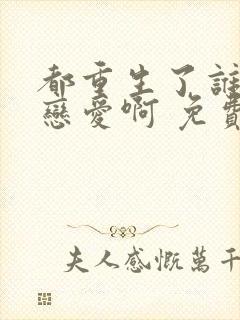 都重生了誰
戀愛啊 免費
夫人感慨萬千